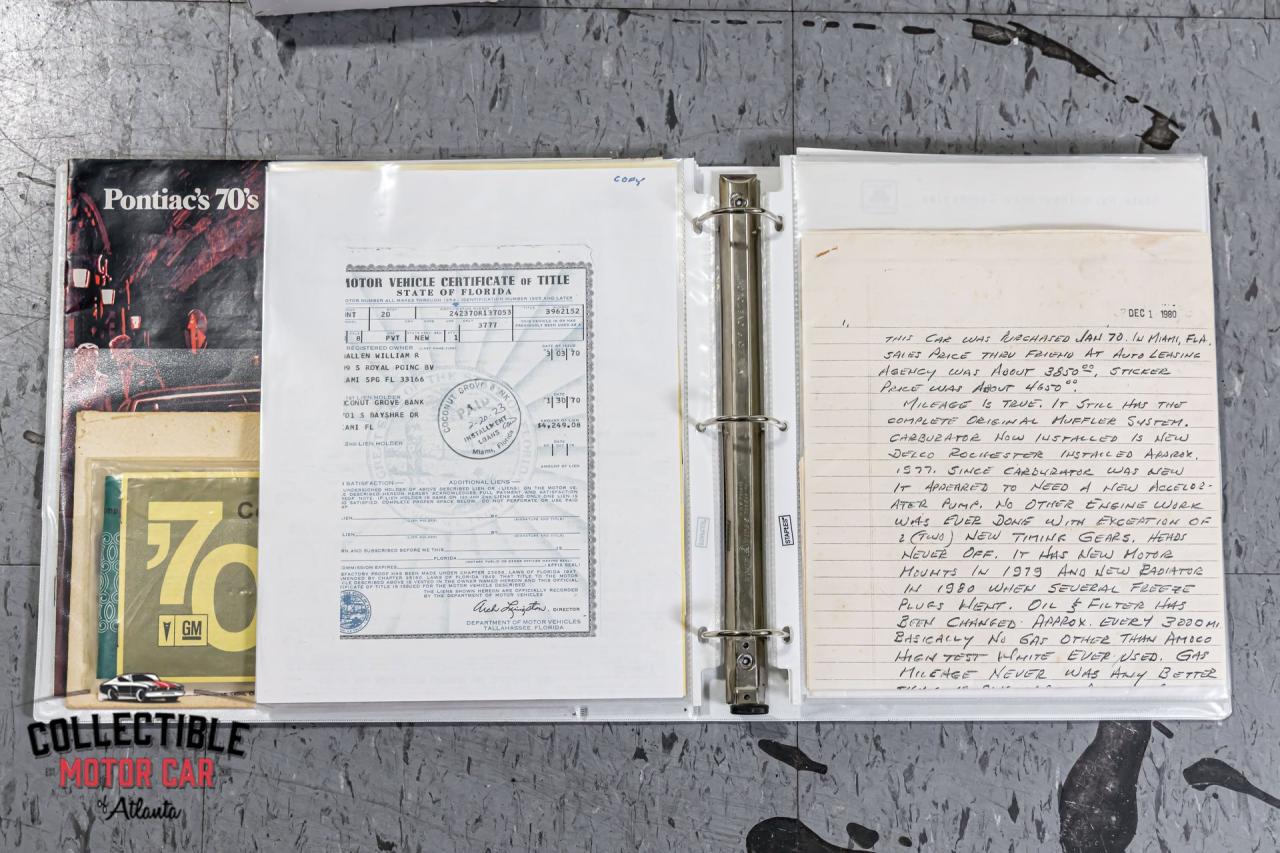 Pontiac's 70's
'70
GM
COPY
MOTOR VEHICLE CERTIFICATE OF TITLE
STATE OF FLORIDA
NT 20 242370R137053 3962152
3777
8 PVT NEW 1
REGISTERED OWNER
DATE OF ISSUE
ALLEN WILLIAM R
3 03 70
9 S ROYAL POINC BV
AMI SPG FL 33166
1ST LIEN HOLDER
CONUT GROVE BANK
1 30 70
01 S BAYSHRE DR
$4,249.08
AMI FL
COCONUT GROVE BANK
PAID
2-20-73
INSTALLMENT
LOANS
Miami, Florida
2ND LIEN HOLDER
AMOUNT OF LIEN
SATISFACTION
ADDITIONAL LIENS
THE LIENS SHOWN HEREON ARE OFFICIALLY RECORDED
BY THE DEPARTMENT OF MOTOR VEHICLES
DIRECTOR
DEPARTMENT OF MOTOR VEHICLES
TALLAHASSEE, FLORIDA
STAPLES
DEC 1 1980
1.
THIS CAR WAS PURCHASED JAN 70. IN MIAMI, FLA.
SALES PRICE THRU FRIEND AT AUTO LEASING
AGENCY WAS ABOUT 3850.00, STICKER
PRICE WAS ABOUT 4650.00.
MILEAGE IS TRUE. IT STILL HAS THE
COMPLETE ORIGINAL MUFFLER SYSTEM.
CARBURATOR NOW INSTALLED IS NEW
DELCO ROCHESTER INSTALLED APPROX.
1977. SINCE CARBURATOR WAS NEW
IT APPEARED TO NEED A NEW ACCELOR-
ATER PUMP. NO OTHER ENGINE WORK
WAS EVER DONE WITH EXCEPTION OF
2 (TWO) NEW TIMING GEARS. HEADS
NEVER OFF. IT HAS NEW MOTOR
MOUNTS IN 1979 AND NEW RADIATOR
IN 1980 WHEN SEVERAL FREEZE
PLUGS WENT. OIL & FILTER HAS
BEEN CHANGED APPROX. EVERY 3000 MI
BASICALLY NO GAS OTHER THAN AMOCO
HIGH TEST WHITE EVER USED. GAS
MILEAGE NEVER WAS ANY BETTER
COLLECTIBLE
MOTOR CAR
of Atlanta